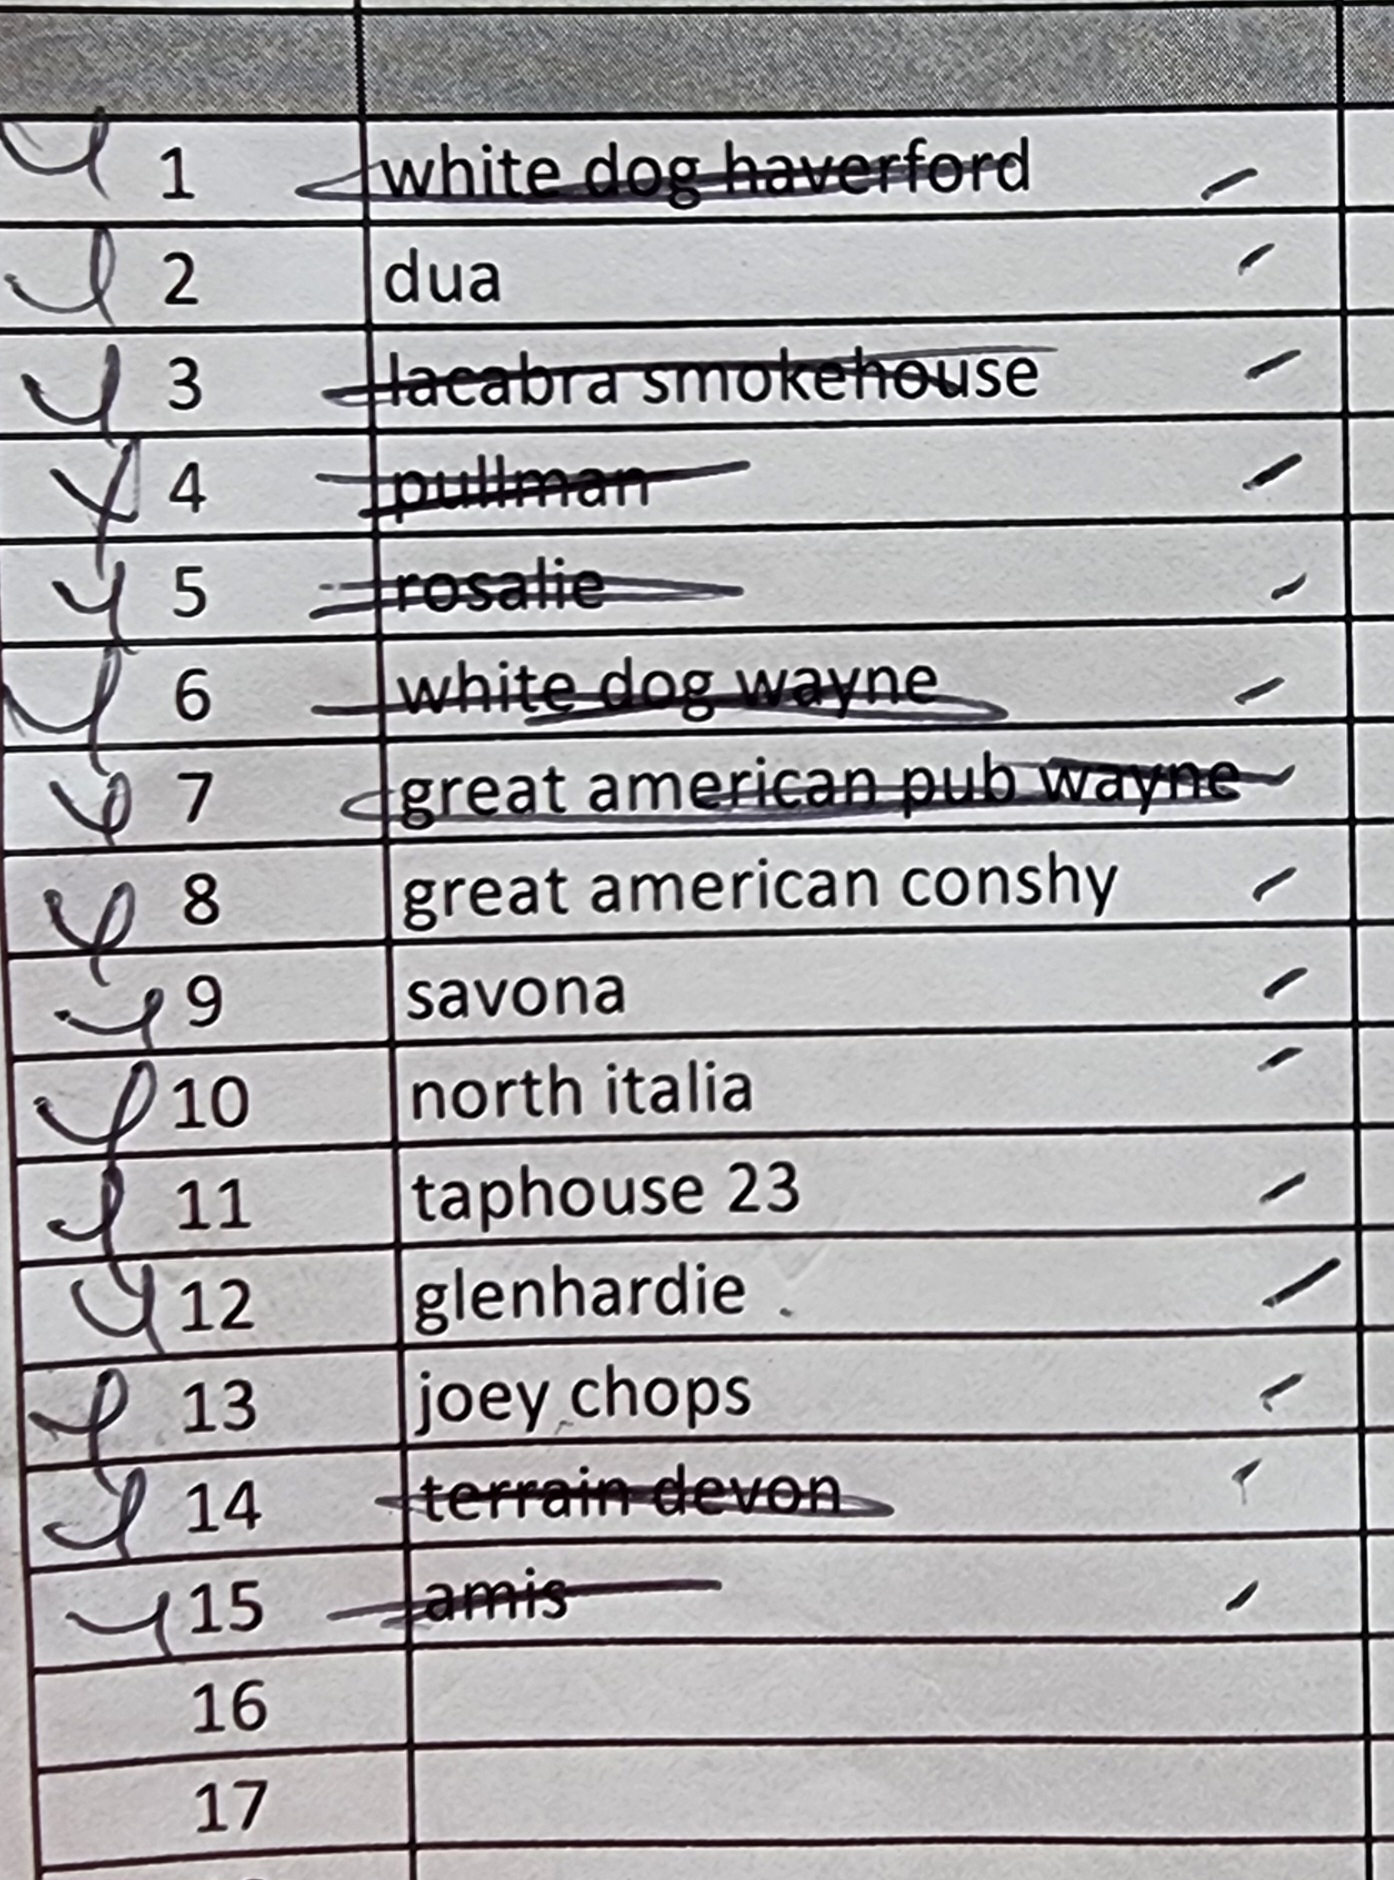 1 white dog haverford
2 dua
3 lacabra smokehouse
4 pullman
5 rosalie
6 white dog wayne
7 great american pub wayne
8 great american conshy
9 savona
10 north italia
11 taphouse 23
12 glenhardie
13 joey chops
14 terrain devon
15 amis
16
17